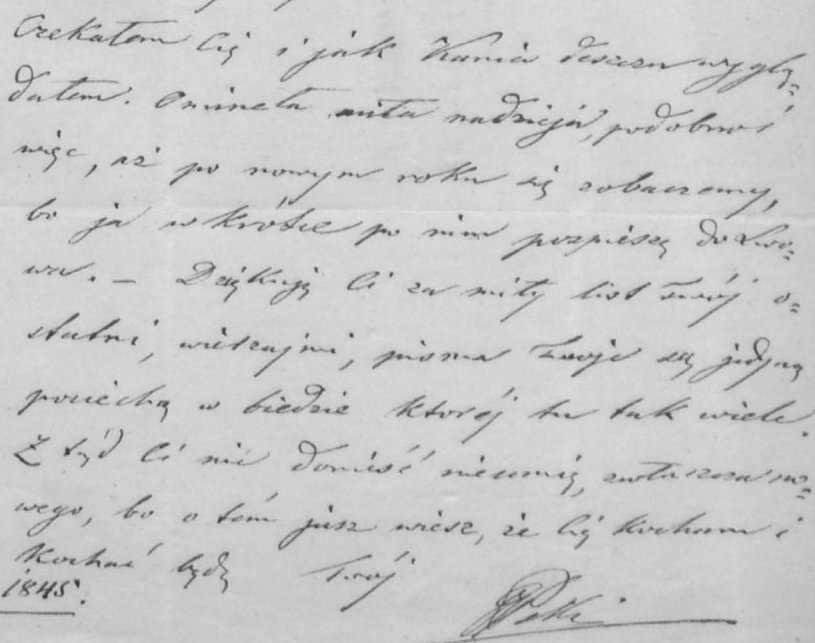 Czekałem Cię i jak Kania deszczu wyglą=
dałem. Ominęła miła nadzieja, podobnoś
więc, aż po nowym roku się zobaczemy,
bo ja wkrótce po nim pospieszę do Lwo=
wa. — Dziękuję Ci za miły list twój o=
statni, wierzajmi, pisma twoje są jedyną
pociechą w biedzie której tu tak wiele.
Z tąd Ci nic donieść nieumię, zwłaszcza no=
wego, bo o tém jusz wiesz, że Cię kocham i
kochać będę Twój
1845.